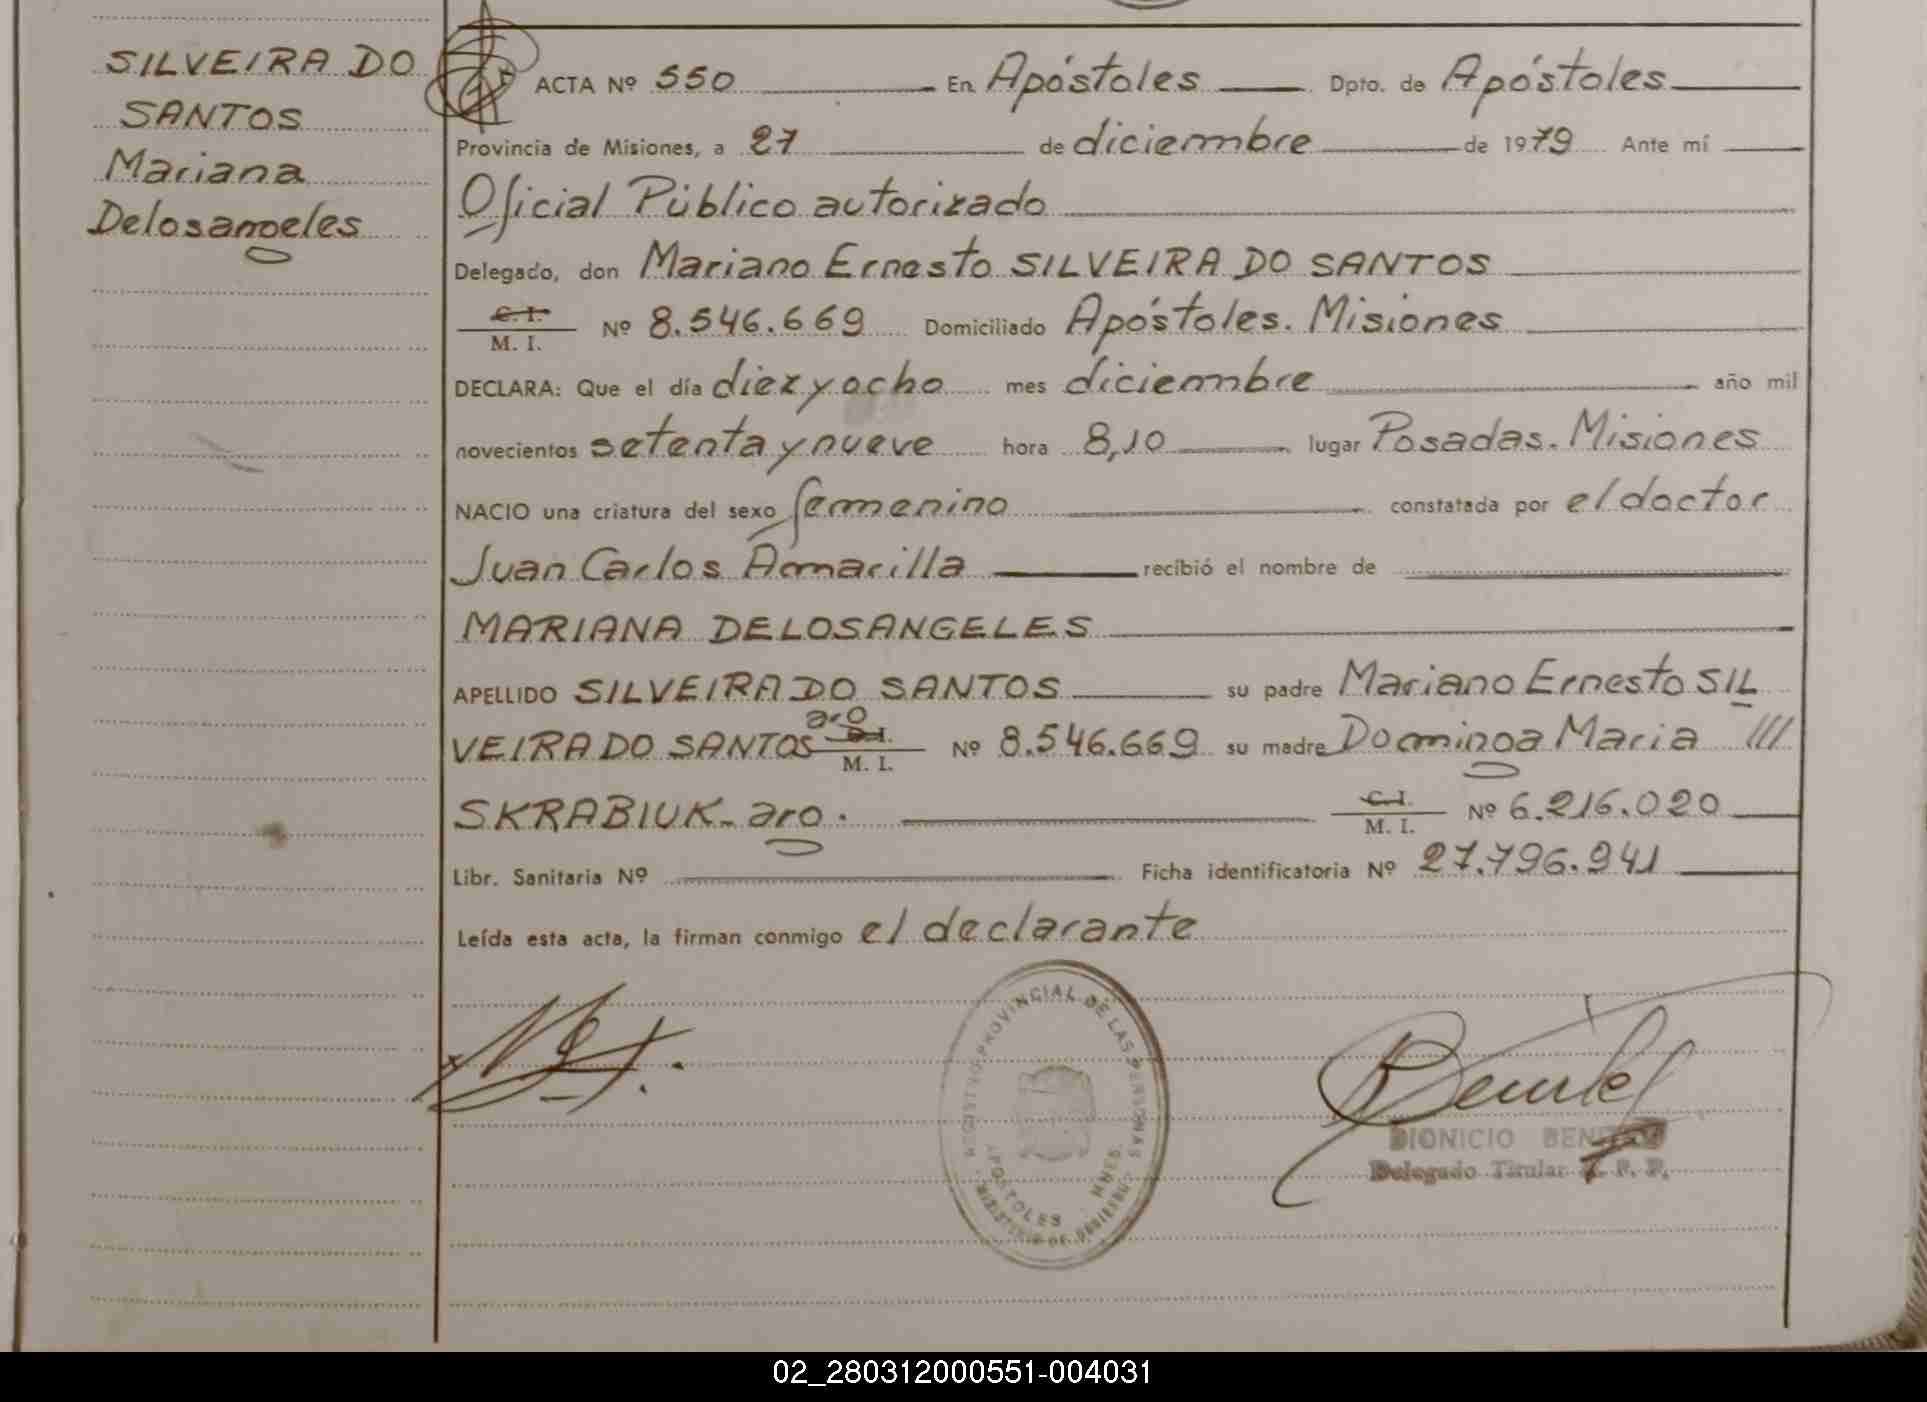 SILVEIRA DO
SANTOS
Mariana
Delosangeles
ACTA Nº 550 En Apóstoles Dpto. de Apóstoles
Provincia de Misiones, a 27 de diciembre de 1979 Ante mí
Oficial Público autorizado
Delegado, don Mariano Ernesto SILVEIRA DO SANTOS
C. I. M. I. Nº 8.546.669 Domiciliado Apóstoles. Misiones
DECLARA: Que el día diez y ocho mes diciembre año mil
novecientos setenta y nueve hora 8,10 lugar Posadas. Misiones
NACIO una criatura del sexo femenino constatada por el doctor
Juan Carlos Amarilla recibió el nombre de
MARIANA DELOSANGELES
APELLIDO SILVEIRA DO SANTOS su padre Mariano Ernesto SIL
VEIRA DO SANTOS aro C. I. M. I. Nº 8.546.669 su madre Dominga Maria ///
SKRABIUK - aro. C. I. M. I. Nº 6.216.020
Libr. Sanitaria Nº Ficha identificatoria Nº 27.796.941
Leída esta acta, la firman conmigo el declarante
REGISTRO PROVINCIAL DE LAS PERSONAS
APOSTOLES MNES.
MINISTERIO DE GOBIERNO
DIONICIO BENITEZ
Delegado Titular R. P. P.
02_280312000551-004031